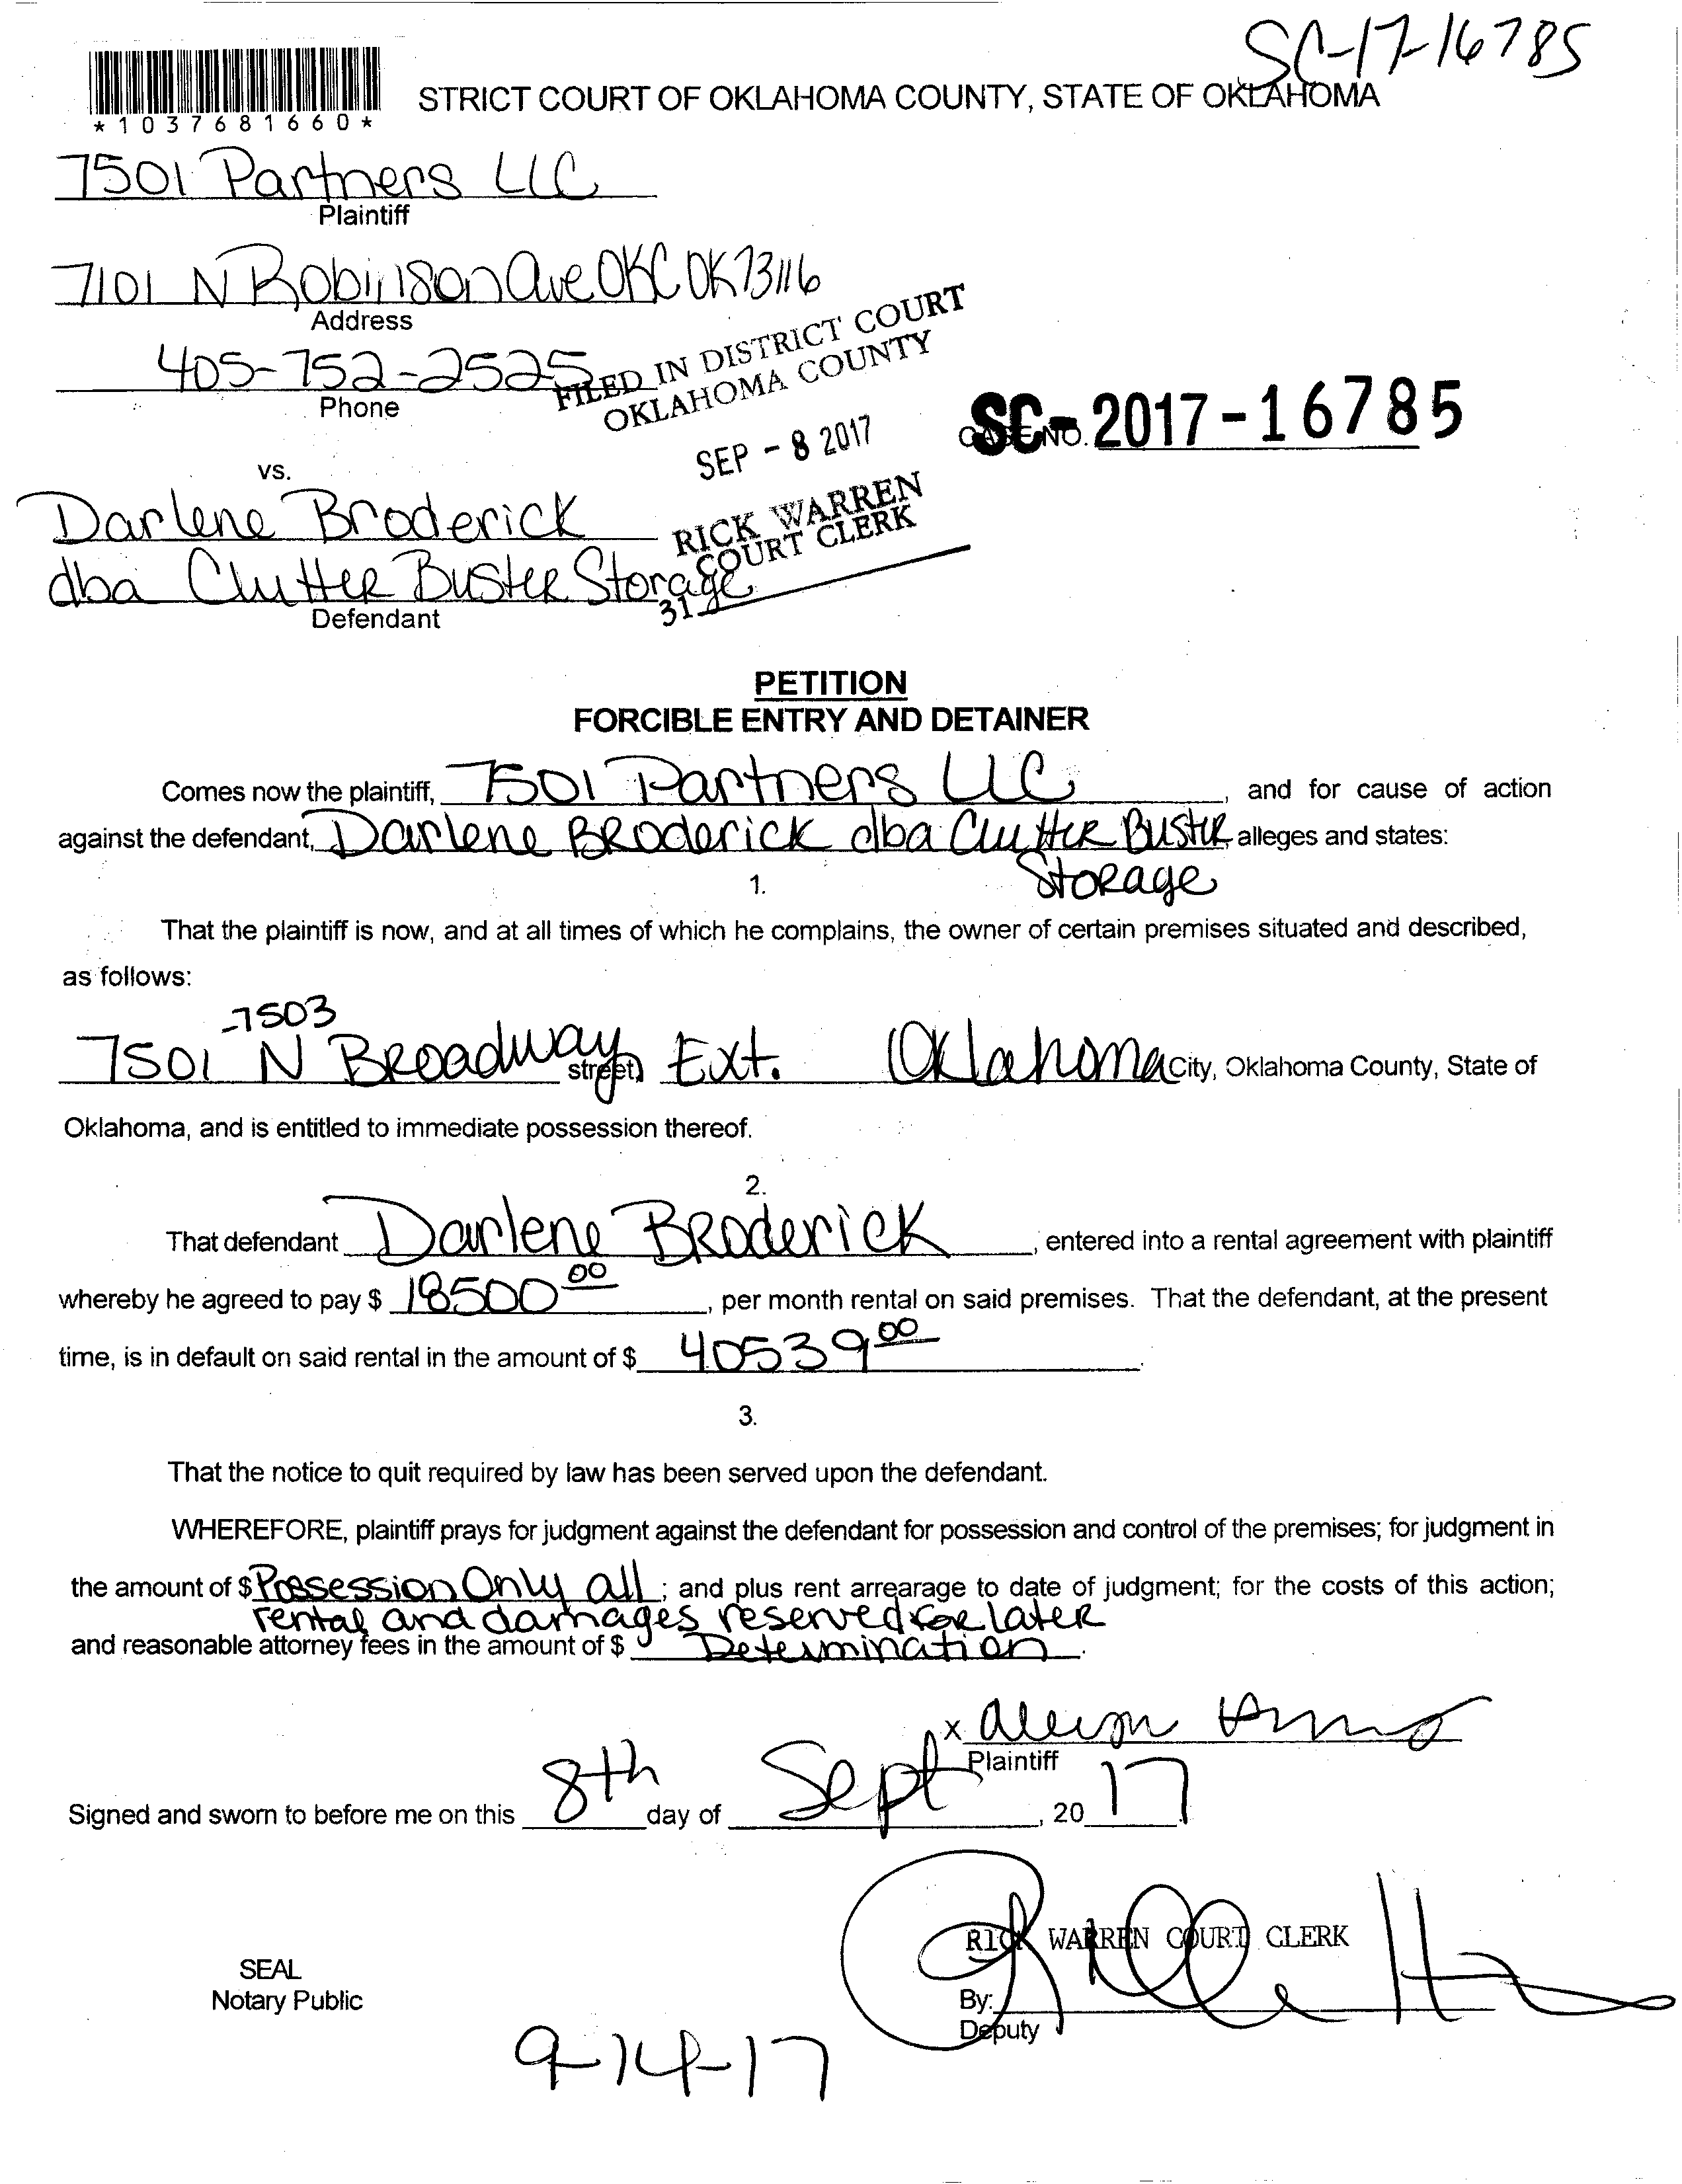 SC-17-16785
*1037681660*
STRICT COURT OF OKLAHOMA COUNTY, STATE OF OKLAHOMA
7501 Partners LLC
Plaintiff
7101 N Robinson Ave OKC OK 73116
Address
405-752-2525
Phone
FILED IN DISTRICT COURT
OKLAHOMA COUNTY
SEP - 8 2017
RICK WARREN
COURT CLERK
31
CASE NO. SC-2017-16785
vs.
Darlene Broderick
dba Clutter Buster Storage
Defendant
PETITION
FORCIBLE ENTRY AND DETAINER
Comes now the plaintiff, 7501 Partners LLC, and for cause of action
against the defendant, Darlene Broderick dba Clutter Buster alleges and states:
Storage
1.
That the plaintiff is now, and at all times of which he complains, the owner of certain premises situated and described,
as follows:
-7503
7501 N Broadway street, Ext. Oklahoma City, Oklahoma County, State of
Oklahoma, and is entitled to immediate possession thereof.
2.
That defendant Darlene Broderick, entered into a rental agreement with plaintiff
whereby he agreed to pay $ 18500 00, per month rental on said premises. That the defendant, at the present
time, is in default on said rental in the amount of $ 40539 00.
3.
That the notice to quit required by law has been served upon the defendant.
WHEREFORE, plaintiff prays for judgment against the defendant for possession and control of the premises; for judgment in
the amount of $ Possession Only all; and plus rent arrearage to date of judgment; for the costs of this action;
rental and damages reserved for later
and reasonable attorney fees in the amount of $ Determination.
x
Plaintiff
Signed and sworn to before me on this 8th day of Sept, 20 17.
RICK WARREN COURT CLERK
SEAL
Notary Public
By:
Deputy
9-14-17